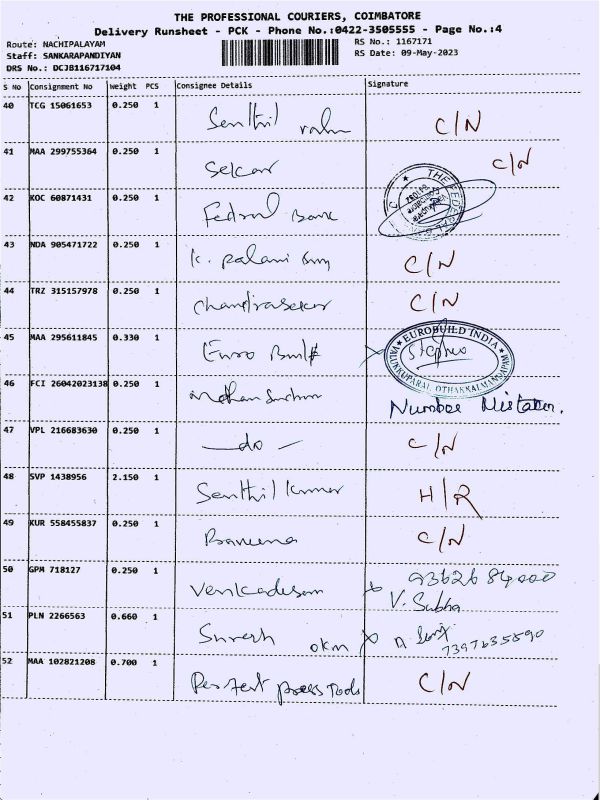 THE PROFESSIONAL COURIERS, COIMBATORE
Delivery Runsheet - PCK - Phone No.:0422-3505555 - Page No.:4
Route: NACHIPALAYAM
RS No.: 1167171
Staff: SANKARAPANDIYAN
RS Date: 09-May-2023
DRS No.: DCJB116717104
S No Consignment No Weight PCS Consignee Details Signature
40 TCG 15061653 0.250 1 Senthil C/N
41 MAA 299755364 0.250 1 Sekar C/N
42 KOC 60871431 0.250 1 Federal Bank THE FEDERAL
43 NDA 905471722 0.250 1 K. Palani C/N
44 TRZ 315157978 0.250 1 Chandrasekar C/N
45 MAA 295611845 0.330 1 Euro Build EUROBUILD INDIA
46 FCI 26042023138 0.250 1 Mohan Number Mistaken.
47 VPL 216683630 0.250 1 — do — C/N
48 SVP 1438956 2.150 1 Senthil Kumar H/R
49 KUR 558455837 0.250 1 C/N
50 GPM 718127 0.250 1 Venkadesan 9362684000
V. Subha
51 PLN 2266563 0.660 1 Suresh okm
7397635890
52 MAA 102821208 0.700 1 Perfect press Tools C/N